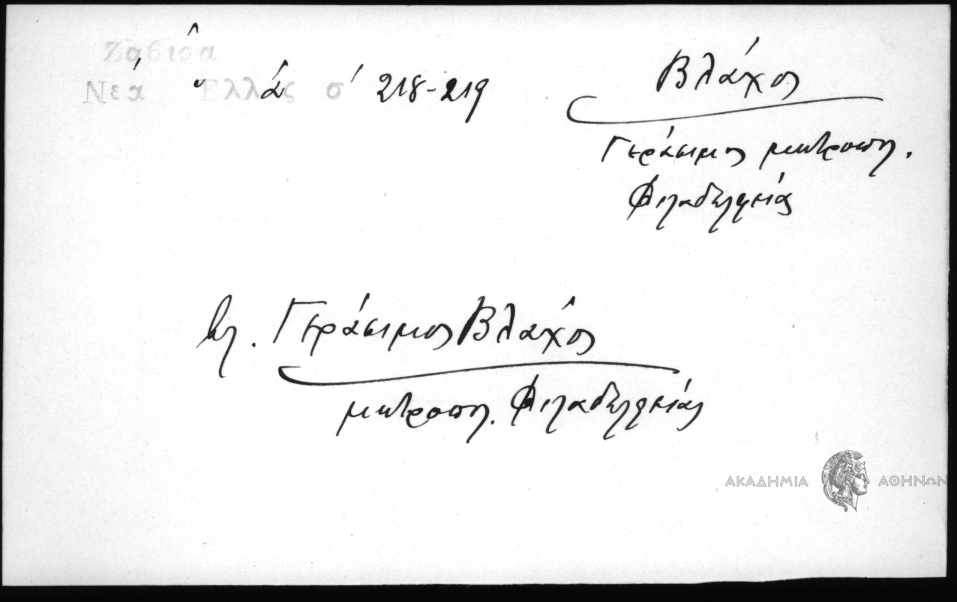 Ζαβιρα
Νέα Ελλάς σ' 218-219
Βλάχος
Γεράσιμος μητροπ.
Φιλαδελφείας
βλ. Γεράσιμος Βλάχος
μητροπ. Φιλαδελφείας
ΑΚΑΔΗΜΙΑ ΑΘΗΝΩΝ